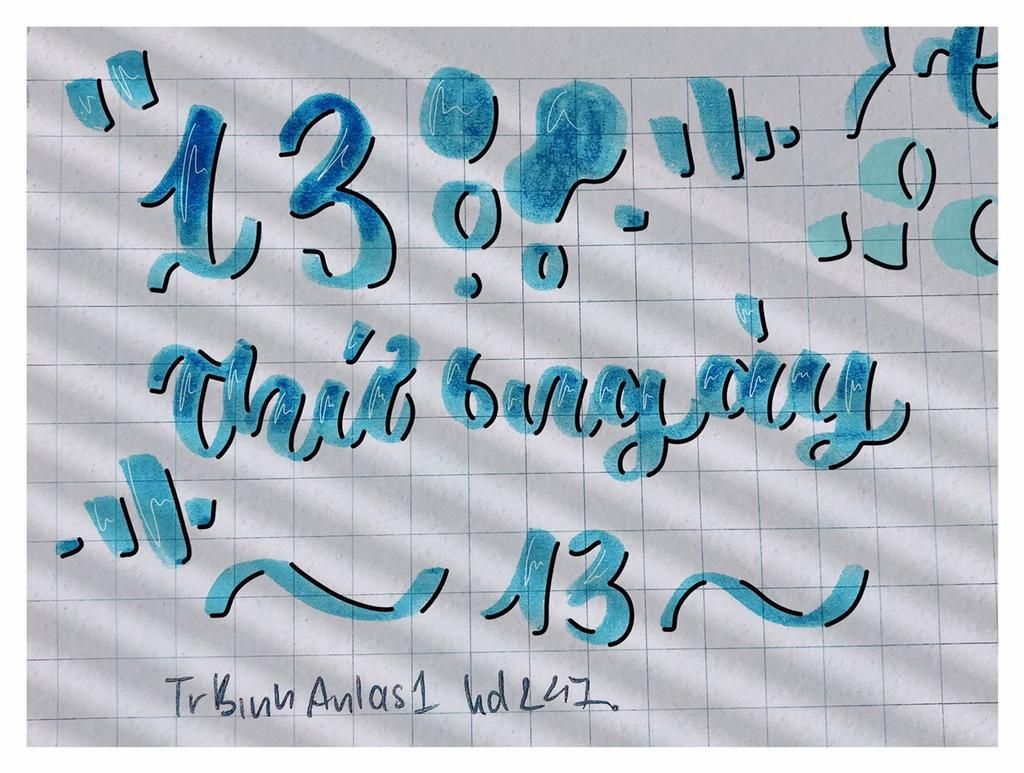 13
Thứ 6 ngày
~ 13 ~
TrBinhAnlas1 hd247.